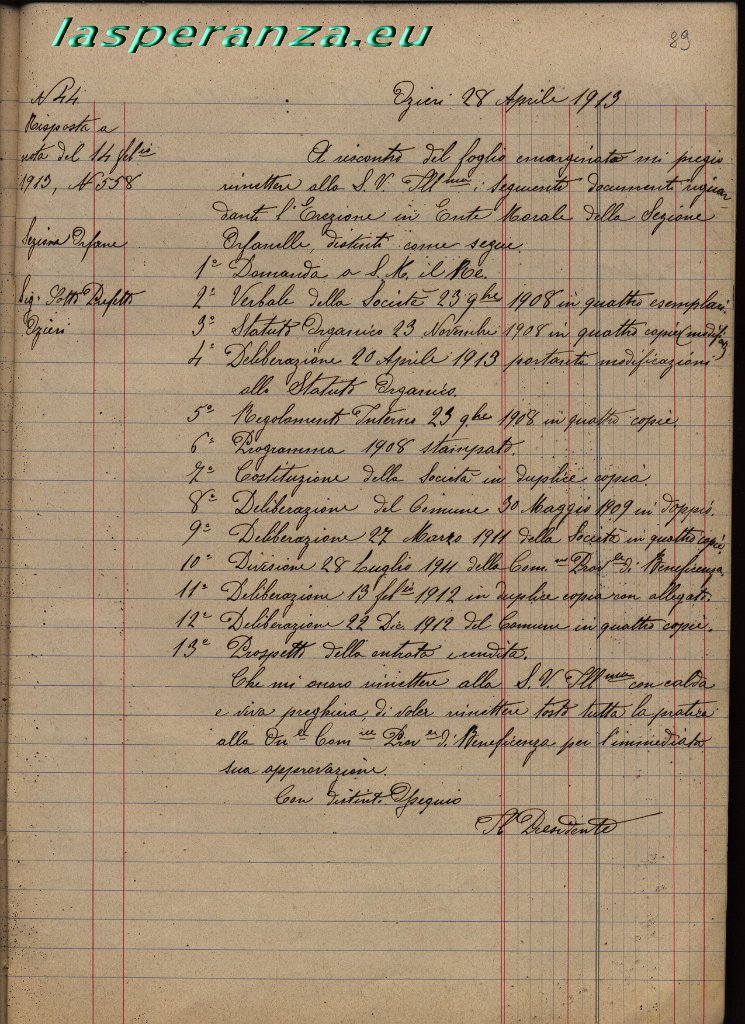 lasperanza.eu
89
N 44
Ozieri 28 Aprile 1913
Risposta a
nota del 14 febio
1913, N 558
Sezione Orfane
Sig. Sotto Prefetto
Ozieri
A riscontro del foglio emarginato mi pregio
rimettere alla S. V. Illma i seguenti documenti riguar
danti l'Erezione in Ente Morale della Sezione
Orfanelle, distinti come segue.
1° Domanda a S. M. il Re.
2° Verbale della Società 23 9bre 1908 in quattro esemplari.
3° Statuto Organico 23 Novembre 1908 in quattro copie
4° Deliberazione 20 Aprile 1913 portante modificazioni
allo Statuto Organico.
5° Regolamento Interno 23 9bre 1908 in quattro copie.
6° Programma 1908 stampato.
7° Costituzione della Società in duplice copia.
8° Deliberazione del Comune 30 Maggio 1909 in doppio.
9° Deliberazione 27 Marzo 1911 della Società in quattro copie.
10° Divisione 28 Luglio 1911 della Com.ne Prov.le di Beneficenza.
11° Deliberazione 13 febio 1912 in duplice copia con allegato.
12° Deliberazione 22 Dic. 1912 del Comune in quattro copie.
13° Prospetto della entrata e rendita.
Che mi onoro rimettere alla S. V. Illma con calda
e viva preghiera, di voler rimettere tosto tutta la pratica
alla On.le Com.ne Prov.le di Beneficenza per l'immediata
sua approvazione.
Con distinto Ossequio
Il Presidente